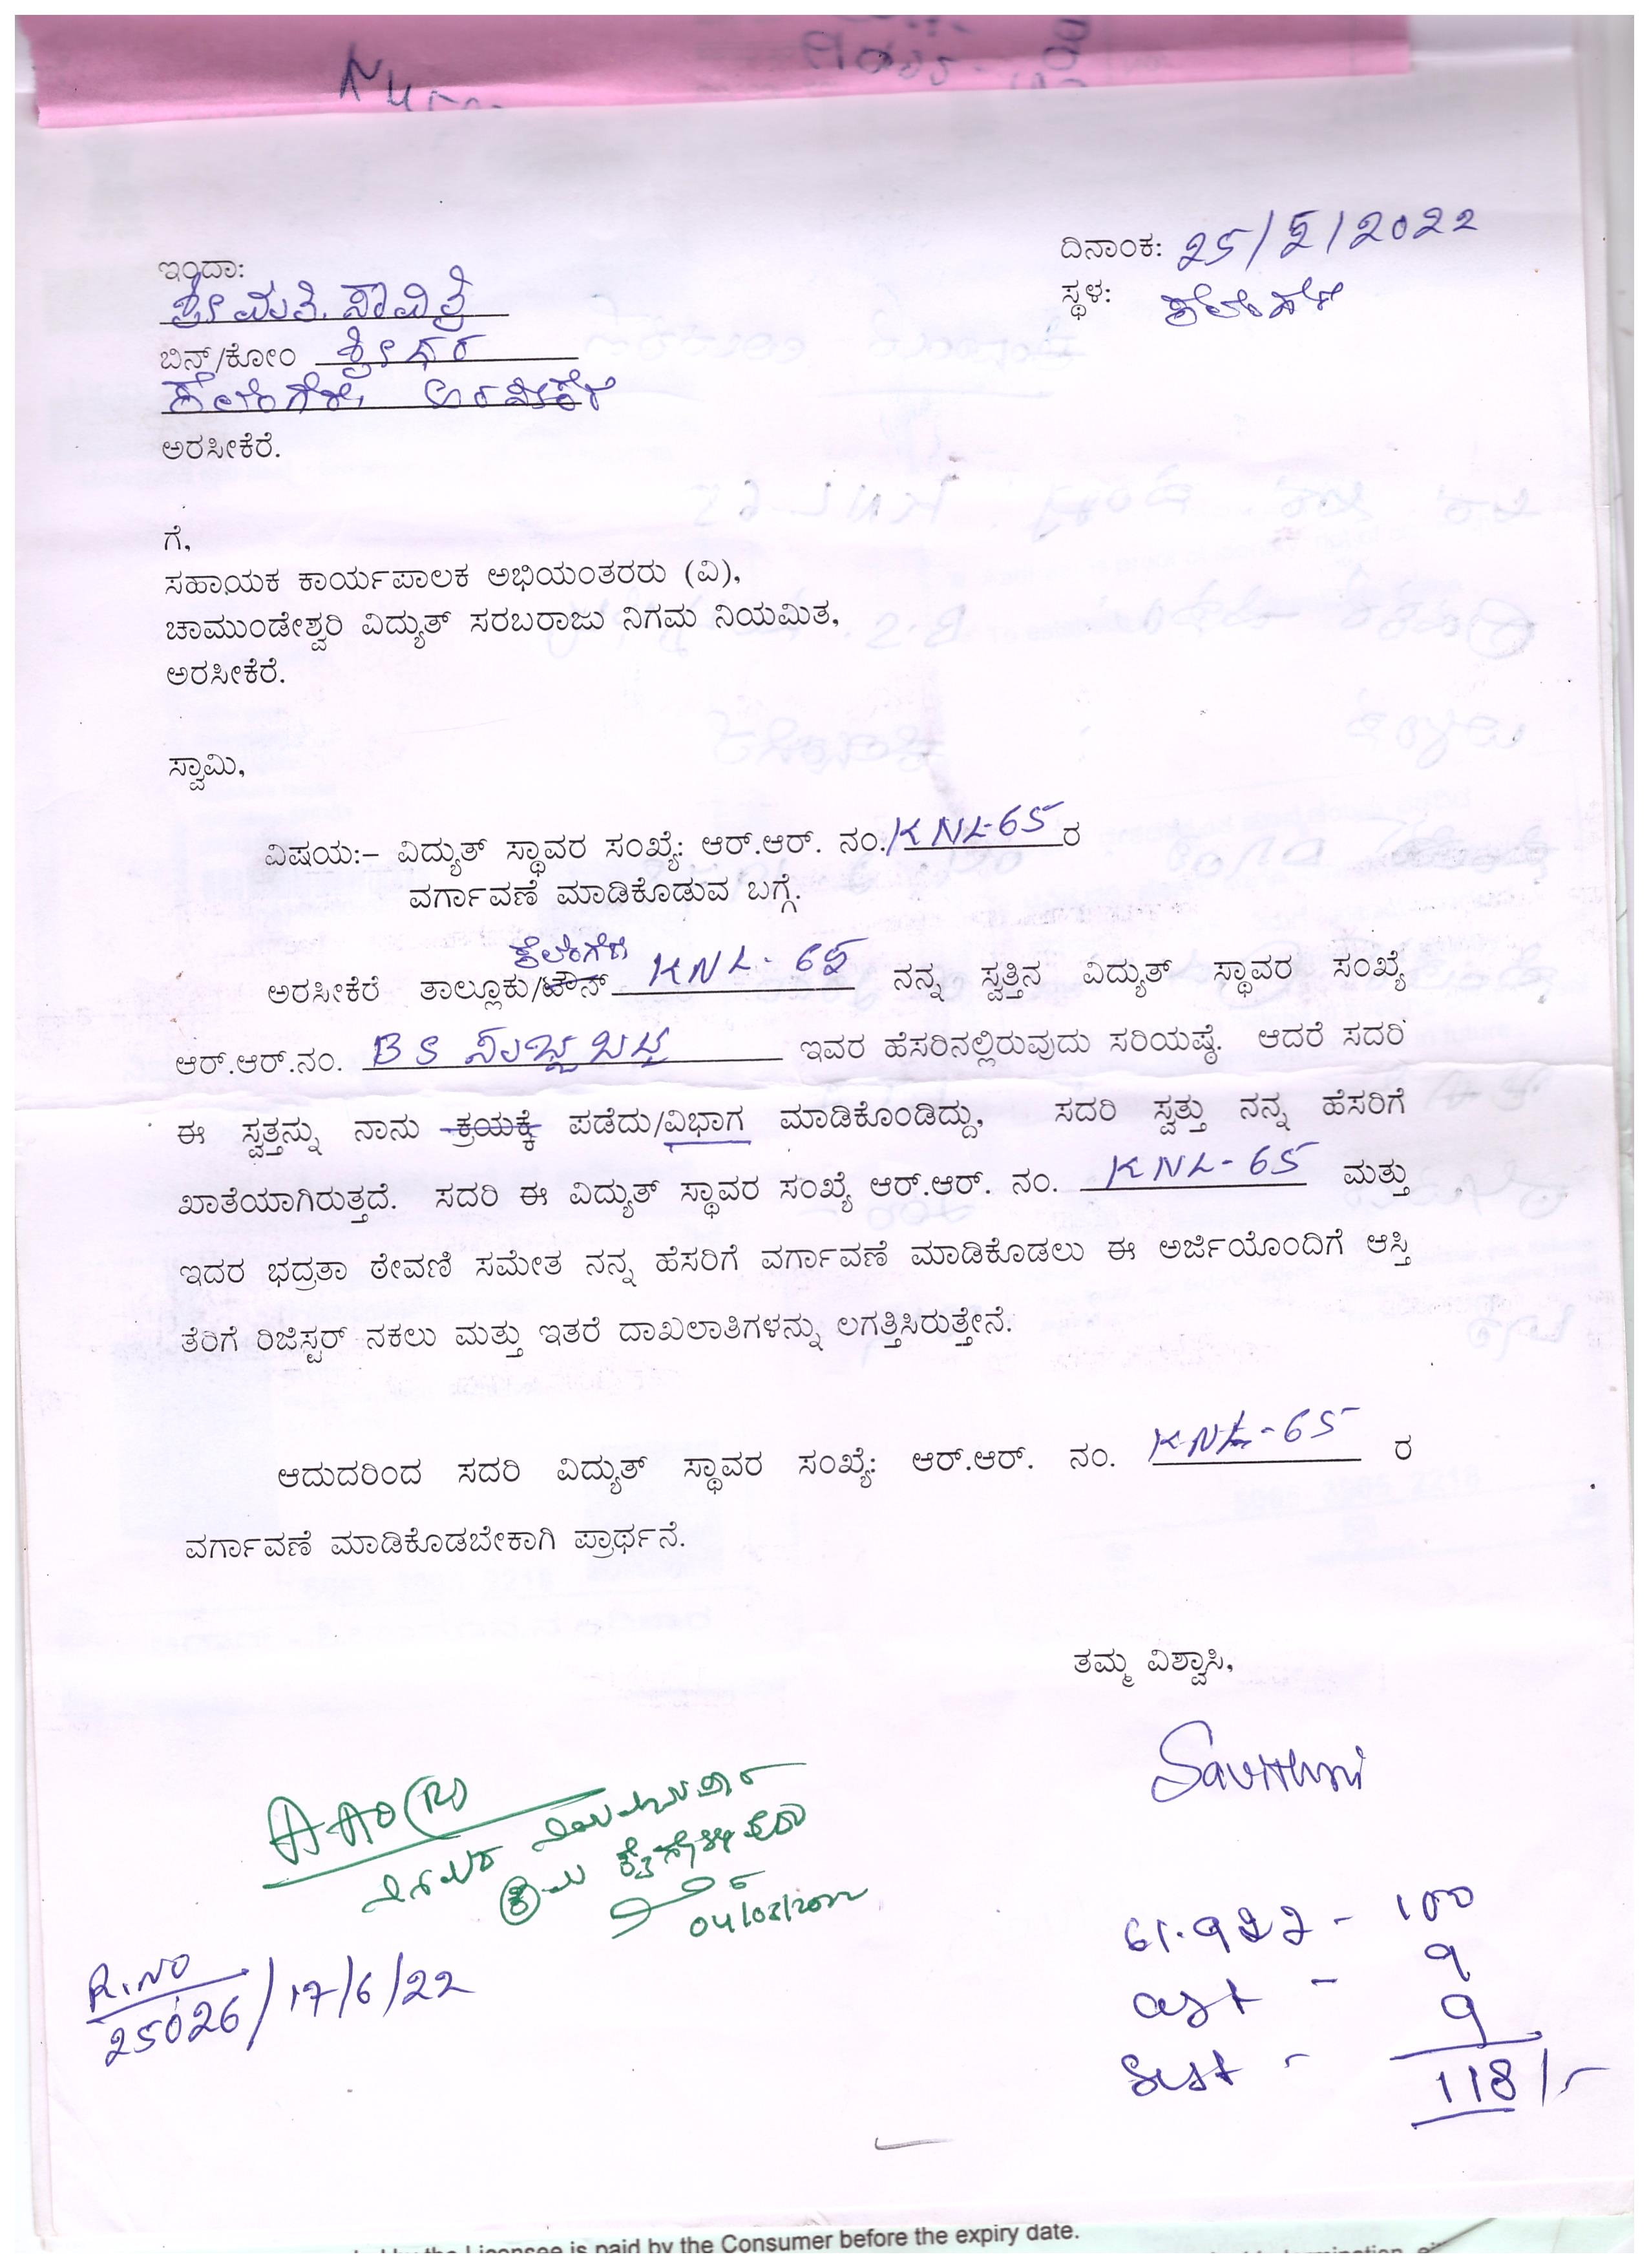 ದಿನಾಂಕ: 25/2/2022
ಇಂದಾ:
ಶ್ರೀಮತಿ. ಸಾವಿತ್ರಿ
ಸ್ಥಳ:
ಬಿನ್/ಕೋಂ ಶ್ರೀಧರ
ಅರಸೀಕೆರೆ
ಅರಸೀಕೆರೆ.
ಗೆ,
ಸಹಾಯಕ ಕಾರ್ಯಪಾಲಕ ಅಭಿಯಂತರರು (ವಿ),
ಚಾಮುಂಡೇಶ್ವರಿ ವಿದ್ಯುತ್ ಸರಬರಾಜು ನಿಗಮ ನಿಯಮಿತ,
ಅರಸೀಕೆರೆ.
ಸ್ವಾಮಿ,
ವಿಷಯ:– ವಿದ್ಯುತ್ ಸ್ಥಾವರ ಸಂಖ್ಯೆ: ಆರ್.ಆರ್. ನಂ./KNL-65 ರ
ವರ್ಗಾವಣೆ ಮಾಡಿಕೊಡುವ ಬಗ್ಗೆ.
ಅರಸೀಕೆರೆ ತಾಲ್ಲೂಕು/ಟೌನ್ KNL-65 ನನ್ನ ಸ್ವತ್ತಿನ ವಿದ್ಯುತ್ ಸ್ಥಾವರ ಸಂಖ್ಯೆ
ಆರ್.ಆರ್.ನಂ. B S ಇವರ ಹೆಸರಿನಲ್ಲಿರುವುದು ಸರಿಯಷ್ಠೆ. ಆದರೆ ಸದರಿ
ಈ ಸ್ವತ್ತನ್ನು ನಾನು ಕ್ರಯಕ್ಕೆ ಪಡೆದು/ವಿಭಾಗ ಮಾಡಿಕೊಂಡಿದ್ದು, ಸದರಿ ಸ್ವತ್ತು ನನ್ನ ಹೆಸರಿಗೆ
ಖಾತೆಯಾಗಿರುತ್ತದೆ. ಸದರಿ ಈ ವಿದ್ಯುತ್ ಸ್ಥಾವರ ಸಂಖ್ಯೆ ಆರ್.ಆರ್. ನಂ. KNL-65 ಮತ್ತು
ಇದರ ಭದ್ರತಾ ಠೇವಣಿ ಸಮೇತ ನನ್ನ ಹೆಸರಿಗೆ ವರ್ಗಾವಣೆ ಮಾಡಿಕೊಡಲು ಈ ಅರ್ಜಿಯೊಂದಿಗೆ ಆಸ್ತಿ
ತೆರಿಗೆ ರಿಜಿಸ್ಟರ್ ನಕಲು ಮತ್ತು ಇತರೆ ದಾಖಲಾತಿಗಳನ್ನು ಲಗತ್ತಿಸಿರುತ್ತೇನೆ.
ಆದುದರಿಂದ ಸದರಿ ವಿದ್ಯುತ್ ಸ್ಥಾವರ ಸಂಖ್ಯೆ: ಆರ್.ಆರ್. ನಂ. KNL-65 ರ
ವರ್ಗಾವಣೆ ಮಾಡಿಕೊಡಬೇಕಾಗಿ ಪ್ರಾರ್ಥನೆ.
ತಮ್ಮ ವಿಶ್ವಾಸಿ,
Savithri
AAO(R)
04/03/2022
R.NO
25026/17/6/22
61.922 - 100
cgst - 9
sgst - 9
118/-
Licensee is paid by the Consumer before the expiry date.